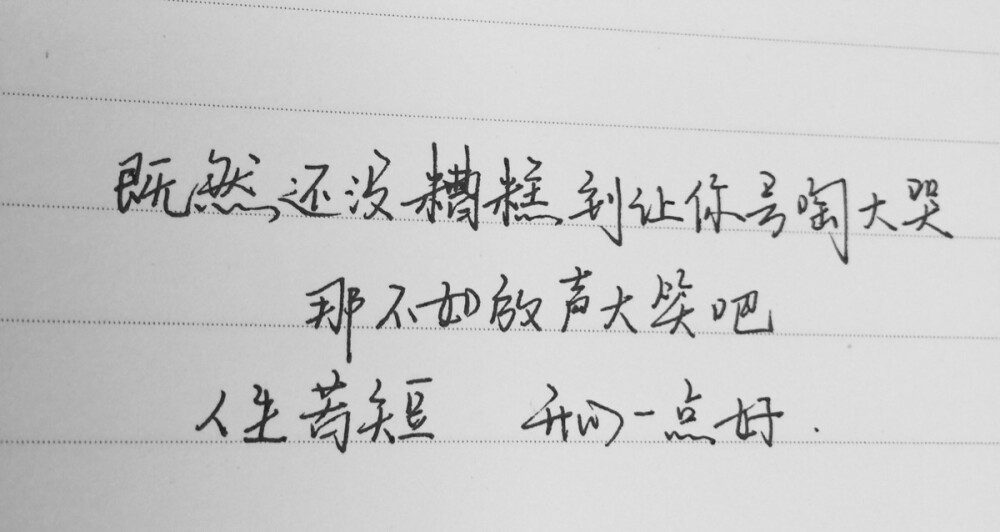 既然还没糟糕到让你号啕大哭
那不如放声大笑吧
人生苦短 开心一点好.